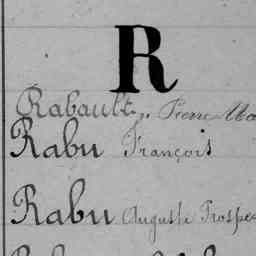 R
Rabault, Pierre
Rabu François
Rabu Auguste Prosper